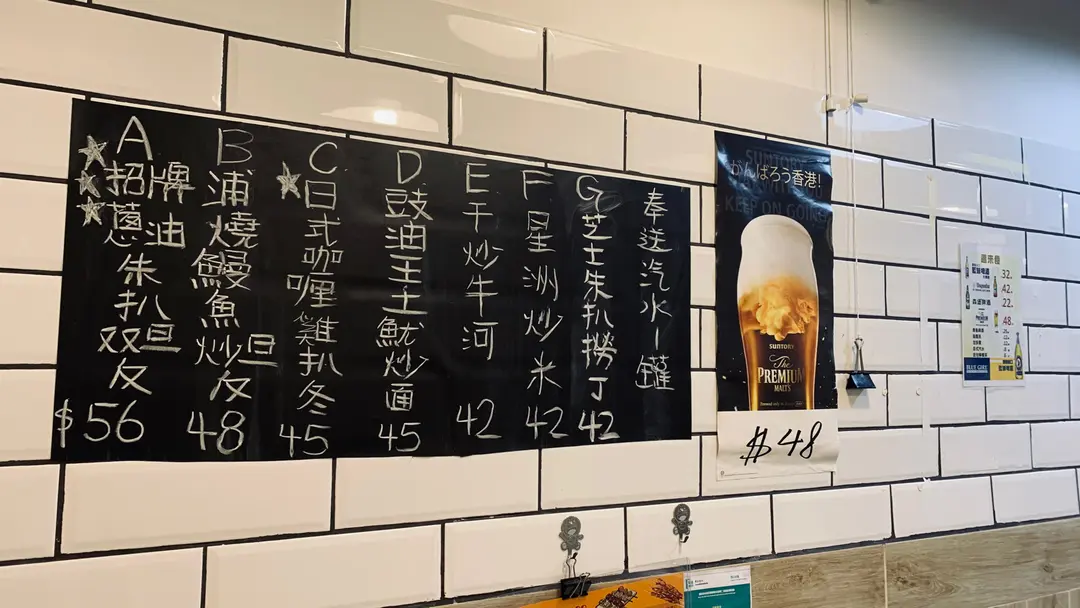 A 招牌蔥油朱扒双旦反 $56
B 浦燒鰻魚炒旦反 48
C 日式咖喱雞扒冬 45
D 豉油王土魷炒面 45
E 干炒牛河 42
F 星洲炒米 42
G 芝士朱扒撈丁 42
奉送汽水一罐
SUNTORY
がんばろう香港!
KEEP ON GOING
SUNTORY
The
PREMIUM
MALT'S
$48
32.
42.
22.
48.
BLUE GIRL